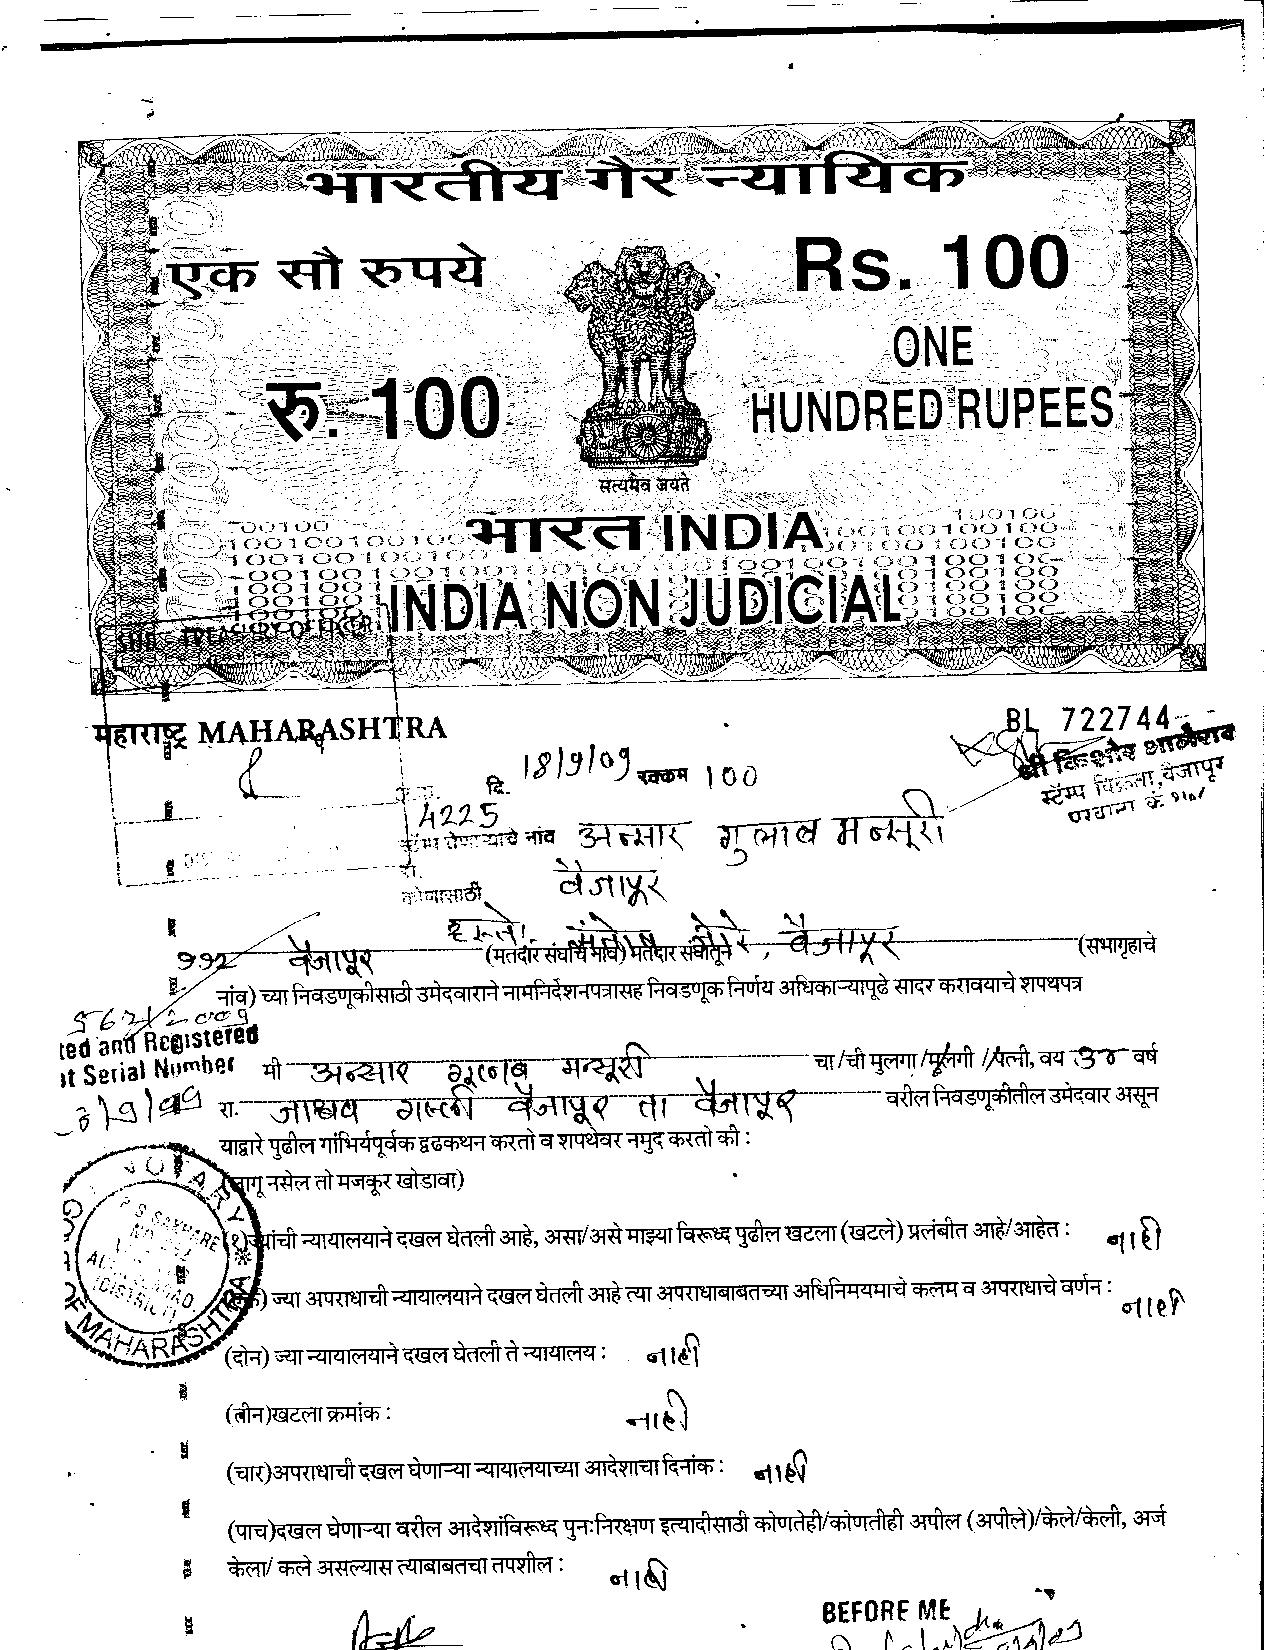 भारतीय गैर न्यायिक
एक सौ रुपये
Rs. 100
ONE
रु. 100
HUNDRED RUPEES
सत्यमेव जयते
भारत INDIA
INDIA NON JUDICIAL
महाराष्ट्र MAHARASHTRA
BL 722744
श्री किशोर
स्टॅम्प विक्रेता, वैजापूर
दि. 18/9/09 रक्कम 100
4225
नांव अन्सार गुलाब मन्सूरी
वैजापूर
कोणासाठी
हस्ते. संतोष मोरे, वैजापूर
११२ वैजापूर (मतदार संघाचे नांव) मतदार संघातून (सभागृहाचे
नांव) च्या निवडणूकीसाठी उमेदवाराने नामनिर्देशनपत्रासह निवडणूक निर्णय अधिकाऱ्यापूढे सादर करावयाचे शपथपत्र
ted and Registered
at Serial Number
मी अन्सार गूलाब मन्सूरी चा/ची मुलगा/मूलगी //पत्नी, वय ३० वर्ष
रा. जाधव गल्ली वैजापूर ता वैजापूर वरील निवडणूकीतील उमेदवार असून
याद्वारे पुढील गांभिर्यपूर्वक द्वढकथन करतो व शपथेवर नमुद करतो की :
(लागू नसेल तो मजकूर खोडावा)
NOTARY
GOVT. OF MAHARASHTRA
(१)ज्यांची न्यायालयाने दखल घेतली आहे, असा/असे माझ्या विरूध्द पुढील खटला (खटले) प्रलंबीत आहे/आहेत : नाही
(एक) ज्या अपराधाची न्यायालयाने दखल घेतली आहे त्या अपराधाबाबतच्या अधिनिमयमाचे कलम व अपराधाचे वर्णन : नाही
(दोन) ज्या न्यायालयाने दखल घेतली ते न्यायालय : नाही
(तीन)खटला क्रमांक : नाही
(चार)अपराधाची दखल घेणाऱ्या न्यायालयाच्या आदेशाचा दिनांक : नाही
(पाच)दखल घेणाऱ्या वरील आदेशांविरूध्द पुनःनिरक्षण इत्यादीसाठी कोणतेही/कोणतीही अपील (अपीले)/केले/केली, अर्ज
केला/ कले असल्यास त्याबाबतचा तपशील : नाही
BEFORE ME